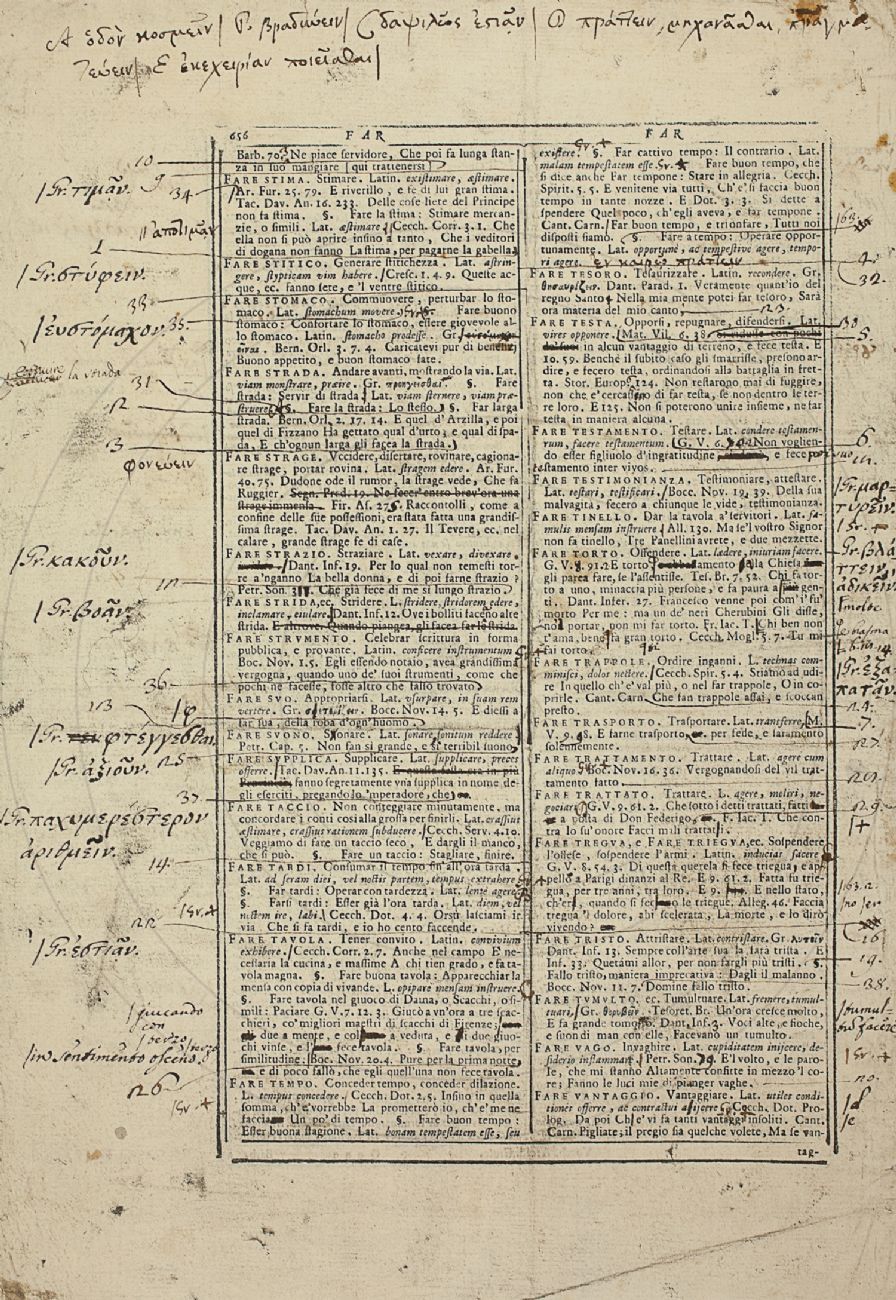 A ὁδὸν κοσμεῖν | B. βραδύνειν | C δαψιλῶς ἑστιᾶν | D πράττειν, μηχανᾶσθαι, πραγμα
τεύειν | E ἐκεχειρίαν ποιεῖσθαι |
656 FAR FAR
10
/Gr. τιμᾶν.
34.
// ἀποτιμᾶν
1
/Gr. στύφειν.
33
/εὐστόμαχον.
35.
la strada
31
12
3
φονεύειν
/Gr. κακοῦν.
/Gr. βοᾶν.
36
113
/Gr. φτέγγεσθαι.
/Gr. ἀξιοῦν.
25
37
/Gr. παχυμερέστερον
ἀριθμεῖν.
14.
22
/Gr. ἑστιᾶν.
/giucando
con
/in sentimento osceno.
26
Barb. 70. Ne piace servidore, Che poi fa lunga stan-
za in suo mangiare [qui trattenersi]
FARE STIMA. Stimare. Latin. existimare, æstimare.
Ar. Fur. 25. 79. E riverillo, e fe di lui gran stima.
Tac. Dav. An. 16. 233. Delle cose liete del Principe
non fa stima. §. Fare la stima: Stimare mercan-
zie, o simili. Lat. æstimare. Cecch. Corr. 3. 1. Che
ella non si può aprire insino a tanto, Che i veditori
di dogana non fanno La stima, per pagarne la gabella.
FARE STITICO. Generare stitichezza. Lat. astrin-
gere, stypticam vim habere. Cresc. 1. 4. 9. Queste ac-
que, ec. fanno sete, e 'l ventre stitico.
FARE STOMACO. Commuovere, perturbar lo sto-
maco. Lat. stomachum movere. Fare buono
stomaco: Confortare lo stomaco, essere giovevole al-
lo stomaco. Latin. stomacho prodesse. Gr.
Bern. Orl. 3. 7. 4. Caricatevi pur di bene
Buono appetito, e buon stomaco fate.
FARE STRADA. Andare avanti, mostrando la via. Lat.
viam monstrare, præire. Gr. προηγεῖσθαι. §. Fare
strada: Servir di strada. Lat. viam sternere, viam præ-
struere. §. Fare la strada: Lo stesso. §. Far larga
strada. Bern. Orl. 2. 17. 14. E quel d'Arzilla, e poi
quel di Fizzano Ha gettato qual d'urto, e qual di spa-
da, E ch'ognun larga gli facea la strada.
FARE STRAGE. Vccidere, disertare, rovinare, cagiona-
re strage, portar rovina. Lat. stragem edere. Ar. Fur.
40. 75. Dudone ode il rumor, la strage vede, Che fa
Ruggier. Segn. Pred. 19. Ne fecer entro brev'ora una
strage immensa. Fir. As. 275. Raccontolli, come a
confine delle sue possessioni, era stata fatta una grandis-
sima strage. Tac. Dav. An. 1. 27. Il Tevere, ec. nel
calare, grande strage fe di case.
FARE STRAZIO. Straziare. Lat. vexare, divexare.
Dant. Inf. 19. Per lo qual non temesti tor-
re a'nganno La bella donna, e di poi farne strazio?
Petr. Son. Che già fece di me sì lungo strazio.
FARE STRIDA, ec. Stridere. L. stridere, stridorem edere,
inclamare, eiulare. Dant. Inf. 12. Ove i bolliti faceno alte
strida. E altrove. Quando piangea, gli facea far le strida.
FARE STRVMENTO. Celebrar scrittura in forma
pubblica, e provante. Latin. conficere instrumentum.
Bocc. Nov. 1. 5. Egli essendo notaio, avea grandissima
vergogna, quando uno de' suoi strumenti, come che
pochi ne facesse, fosse altro che falso trovato.
FARE SVO. Appropriarsi. Lat. usurpare, in suam rem
vertere. Gr. Bocc. Nov. 14. 5. E diessi a
far sua, della roba d'ogn'huomo.
FARE SVONO. Sonare. Lat. sonare, sonitum reddere.
Petr. Cap. 5. Non fan sì grande, e sì terribil suono.
FARE SVPPLICA. Supplicare. Lat. supplicare, preces
offerre. Tac. Dav. An. 11. 135.
fanno segretamente vna supplica in nome de-
gli eserciti, pregando lo 'mperadore, che
FARE TACCIO. Non conteggiare minutamente, ma
concordare i conti così alla grossa per finirli. Lat. crassius
æstimare, crassius rationem subducere. Cecch. Serv. 4. 10.
Veggiamo di fare un taccio seco, E dargli il manco,
che si può. §. Fare un taccio: Stagliare, finire.
FARE TARDI. Consumar il tempo fin all'ora tarda.
Lat. ad seram diei, vel noctis partem, tempus extrahere.
§. Far tardi: Operar con tardezza. Lat. lente agere.
§. Farsi tardi: Esser già l'ora tarda. Lat. diem, vel
noctem ire, labi. Cecch. Dot. 4. 4. Orsù lasciami ir
via Che si fa tardi, e io ho cento faccende.
FARE TAVOLA. Tener convito. Latin. convivium
exhibere. Cecch. Corr. 2. 7. Anche nel campo E' ne-
cessaria la cucina, e massime A chi tien grado, e fa ta-
vola magna. §. Fare buona tavola: Apparecchiar la
mensa con copia di vivande. L. opipare mensam instruere.
§. Fare tavola nel giuoco di Dama, o Scacchi, o si-
mili: Paciare G. V. 7. 12. 3. Giucò a vn'ora a tre scac-
chieri, co' migliori maestri di scacchi di Firenze;
due a mente, e col a veduta, e i due giuo-
chi vinse, e l' fece tavola. §. Fare tavola, per
similitudine. Boc. Nov. 20. 4. Pure per la prima notte,
e di poco fallò, che egli quell'una non fece tavola.
FARE TEMPO. Conceder tempo, conceder dilazione.
L. tempus concedere. Cecch. Dot. 2. 5. Insino in quella
somma, ch'e' vorrebbe La prometterò io, ch'e' me ne
faccia Un po' di tempo. §. Fare buon tempo:
Esser buona stagione. Lat. bonam tempestatem esse, seu
existere. §. Far cattivo tempo: Il contrario. Lat.
malam tempestatem esse. Fare buon tempo, che
si dice anche Far tempone: Stare in allegria. Cecch.
Spirit. 5. 5. E venitene via tutti, Ch'e' si faccia buon
tempo in tante nozze. E Dot. 3. 3. Si dette a
spendere Quel poco, ch'egli aveva, e far tempone.
Cant. Carn. Far buon tempo, e trionfare, Tutti noi
disposti siamo. §. Fare a tempo: Operare oppor-
tunamente. Lat. opportuni, ac tempestive agere, tempo-
ri agere. εὐκαίρως πράττειν
FARE TESORO. Tesaurizzare. Latin. recondere. Gr.
θησαυρίζειν. Dant. Parad. 1. Veramente quant'io del
regno Santo Nella mia mente potei far tesoro, Sarà
ora materia del mio canto.
FARE TESTA. Opporsi, repugnare, difendersi. Lat.
vires opponere. Mat. Vil. 6. 38.
in alcun vantaggio di terreno, e fece testa. E
10. 59. Benchè il subito caso gli smarrisse, presono ar-
dire, e fecero testa, ordinandosi alla battaglia in fret-
ta. Stor. Europ. 124. Non restarono mai di fuggire,
non che e' cercassino di far testa, se non dentro le ter-
re loro. E 125. Non si poterono unire insieme, ne far
testa in maniera alcuna.
FARE TESTAMENTO. Testare. Lat. condere testamen-
tum, facere testamentum. G. V. 6. Non voglien-
do esser figliuolo d'ingratitudine, e fece
testamento inter vivos.
FARE TESTIMONIANZA. Testimoniare, attestare.
Lat. testari, testificari. Bocc. Nov. 19. 39. Della sua
malvagità, fecero a chiunque le vide, testimonianza.
FARE TINELLO. Dar la tavola a' servitori. Lat. fa-
mulis mensam instruere. All. 130. Ma se'l vostro Signor
non fa tinello, Tre Panellini avrete, e due mezzette.
FARE TORTO. Offendere. Lat. lædere, iniuriam facere.
G. V. 8. 91. 2. E torto alla Chiesa
gli parea fare, se l'assentisse. Tes. Br. 7. 52. Chi fa tor-
to a uno, minaccia più persone, e fa paura a gen-
ti. Dant. Infer. 27. Francesco venne poi com'i' fu'
morto Per me: ma un de' neri Cherubini Gli disse,
nol portar non mi far torto. Fr. Iac. T. Chi ben non
t'ama, ben fa gran torto. Cecch. Mogl. 5. 7. Tu mi
fai torto.
FARE TRAPPOLE. Ordire inganni. L. technas com-
minisci, dolos nectere. Cecch. Spir. 5. 4. Stiamo ad udi-
re In quello ch'e' val più, o nel far trappole, O in co-
prirle. Cant. Carn. Che fan trappole assai, e scoccan
presto.
FARE TRASPORTO. Trasportare. Lat. transferre. M.
V. 9. 48. E farne trasporto per fede, e saramento
solennemente.
FARE TRATTAMENTO. Trattare. Lat. agere cum
aliquo. Boc. Nov. 16. 36. Vergognandosi del vil trat-
tamento fatto
FARE TRATTATO. Trattare. L. agere, moliri, ne-
gociari. G. V. 9. 61. 2. Che sotto i detti trattati, fatti
a posta di Don Federigo. F. Iac. T. Che con-
tra lo su' onore Facci mili trattati.
FARE TREGVA, e FARE TRIEGVA, ec. Sospendere
l'offese, sospendere l'armi. Latin. inducias facere
G. V. 8. 54. 3. Di questa querela si fece triegua, e ap-
pello a Parigi dinanzi al Re. E 9. 61. 2. Fatta fu trie-
gua, per tre anni, tra loro. E 9. E nello stato,
ch'er quando si fec le triegue. Alleg. 46. Faccia
tregua 'l dolore, ahi scelerata, La morte, e lo dirò
vivendo?
FARE TRISTO. Attristare. Lat. contristare. Gr. λυπεῖν
Dant. Inf. 13. Sempre coll'arte sua la farà trista. E
Inf. 33. Quetámi allor, per non fargli più tristi. §.
Fallo tristo, maniera imprecativa: Dagli il malanno.
Bocc. Nov. 11. 7. Domine fallo tristo.
FARE TVMVLTO, ec. Tumultuare. Lat. fremere, tumul-
tuari. Gr. θορυβεῖν. Tesoret. Br. Un'ora cresce molto,
E fa grande tomolto. Dant. Inf. 3. Voci alte, e fioche,
e suon di man con elle, Facevano un tumulto.
FARE VAGO. Invaghire. Lat. cupiditatem iniicere, de-
siderio inflammare. Petr. Son. E'l volto, e le paro-
le, che mi stanno Altamente confitte in mezzo 'l co-
re; Fanno le luci mie di pianger vaghe.
FARE VANTAGGIO. Vantaggiare. Lat. utiles condi-
tiones offerre, ac contractus adiicere. Cecch. Dot. Pro-
log. Da poi Ch'e' vi fa tanti vantaggi insoliti. Cant.
Carn. Pigliate, il pregio sia quelche volete, Ma se van-
tag-
4.
32.
30
5.
6.
/Gr. μαρ-
τυρεῖν.
/Gr. βλά
πτειν,
ἀδικεῖν.
/Gr. ἐξα-
πατᾶν.
24.
7.
27.
29.
16
19.
38.
/tumul-
20.